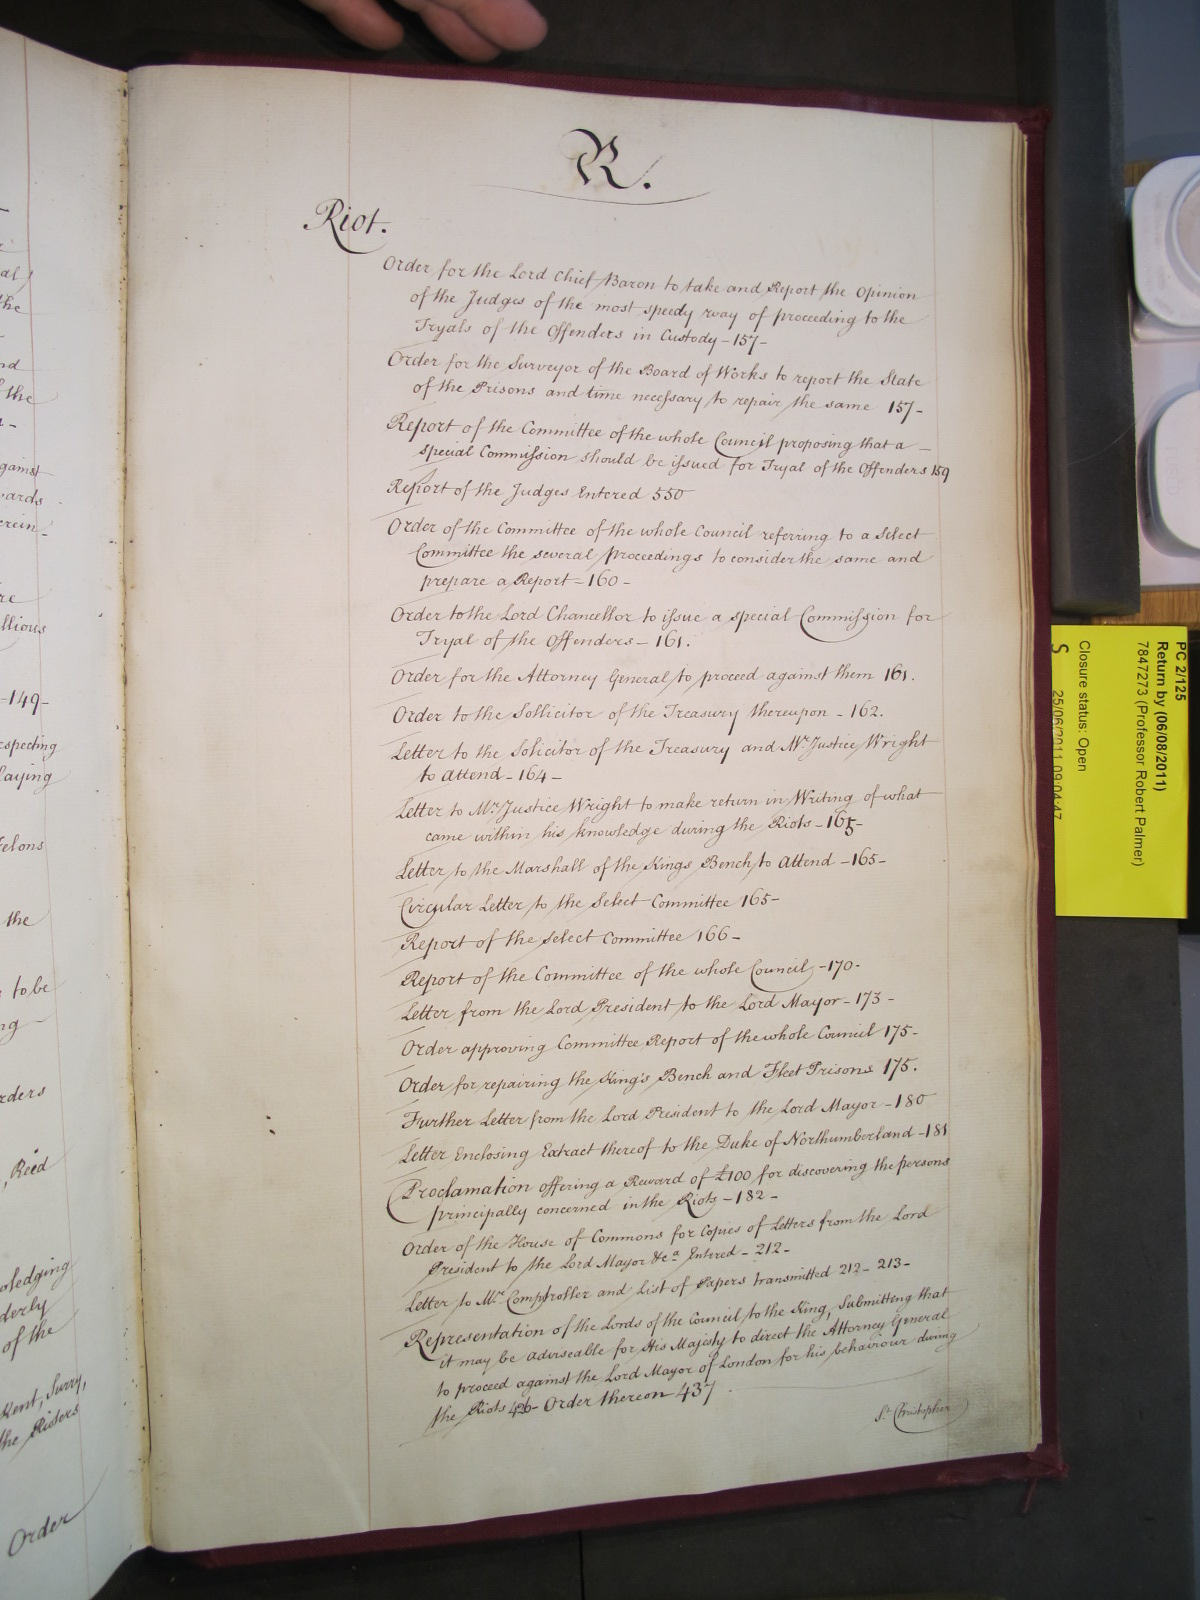 R.
Riot.
Order for the Lord Chief Baron to take and Report the Opinion
of the Judges of the most speedy way of proceeding to the
Tryals of the Offenders in Custody - 157 -
Order for the Surveyor of the Board of Works to report the State
of the Prisons and time necessary to repair the same 157 -
Report of the Committee of the whole Council proposing that a -
special Commission should be issued for Tryal of the Offenders 159
Report of the Judges Entered 550
Order of the Committee of the whole Council referring to a Select
Committee the several proceedings to consider the same and
prepare a Report - 160 -
Order to the Lord Chancellor to issue a special Commission for
Tryal of the Offenders - 161.
Order for the Attorney General to proceed against them 161.
Order to the Sollicitor of the Treasury thereupon - 162.
Letter to the Solicitor of the Treasury and Mr. Justice Wright
to attend - 164 -
Letter to Mr. Justice Wright to make return in Writing of what
came within his knowledge during the Riots - 165 -
Letter to the Marshall of the Kings Bench to Attend - 165 -
Circular Letter to the Select Committee 165 -
Report of the Select Committee 166 -
Report of the Committee of the whole Council - 170 -
Letter from the Lord President to the Lord Mayor - 173 -
Order approving Committee Report of the whole Council 175 -
Order for repairing the King's Bench and Fleet Prisons 175.
Further Letter from the Lord President to the Lord Mayor - 180
Letter Enclosing Extract thereof to the Duke of Northumberland - 181
Proclamation offering a Reward of £100 for discovering the persons
principally concerned in the Riots - 182 -
Order of the House of Commons for Copies of Letters from the Lord
President to the Lord Mayor &ca. Entered - 212 -
Letter to Mr. Comptroller and List of Papers transmitted 212 - 213 -
Representation of the Lords of the Council to the King, Submitting that
it may be adviseable for His Majesty to direct the Attorney General
to proceed against the Lord Mayor of London for his behaviour during
the Riots 426 - Order thereon 437
St. Christopher
al
the
nd
of the
gainst
wards
erein
llious
- 149 -
especting
laying
Felons
the
to be
ng
rders
, Reed
wledging
derly
of the
Kent, Surry,
the Rioters
Order
PC 2/125
Return by (06/08/2011)
7847273 (Professor Robert Palmer)
Closure status: Open
S
25/06/2011 09:04:47